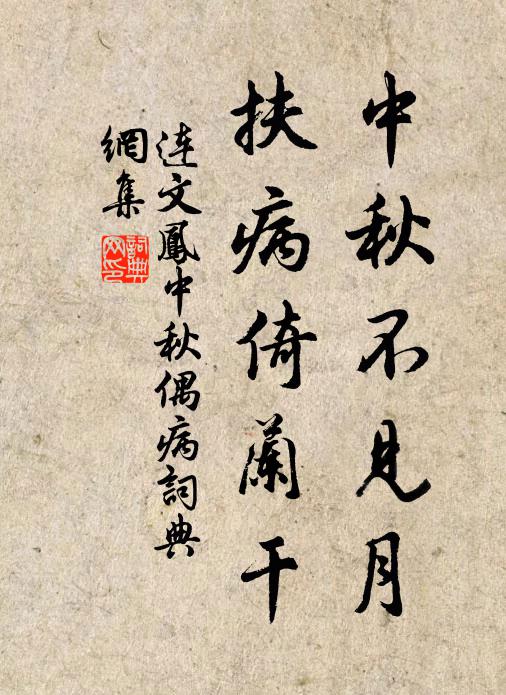 中秋不見月
扶病倚蘭干
連文鳳中秋偶病詞典
網集
詞典
网印